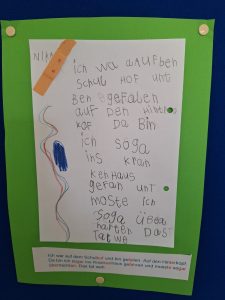 ich wa auf den
Schul Hof unt
Ben gefalen
auf den Hinter
Kof Da Bin
ich soga
ins kran
kenhaus
gefarn unt
moste ich
soga üBea
nachten Das
Tat we
Ich war auf dem Schulhof und bin gefallen. Auf den Hinterkopf.
Da bin ich sogar ins Krankenhaus gefahren und musste sogar
übernachten. Das tat weh.